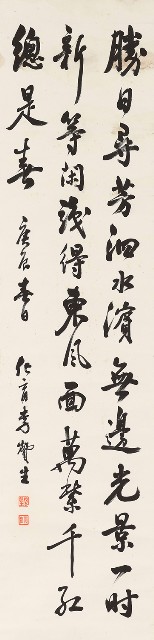 勝日尋芳泗水濱無邊光景一時
新等閑識得東風面萬紫千紅
總是春 庚辰春日 李生